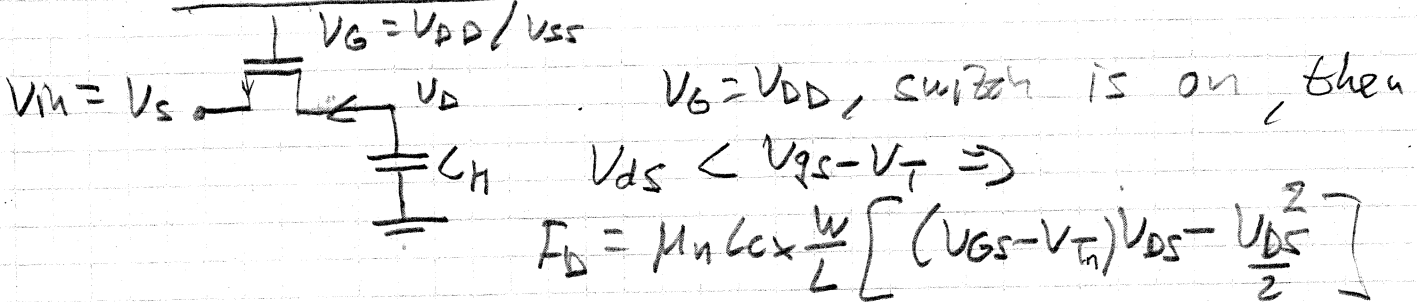 V_G = V_DD / V_SS
Vin = V_S V_D V_G = V_DD, switch is on, then
C_H V_ds < V_gs - V_T ⇒
I_D = μ_n C_ox W/L [ (V_GS - V_Tn) V_DS - V_DS^2/2 ]